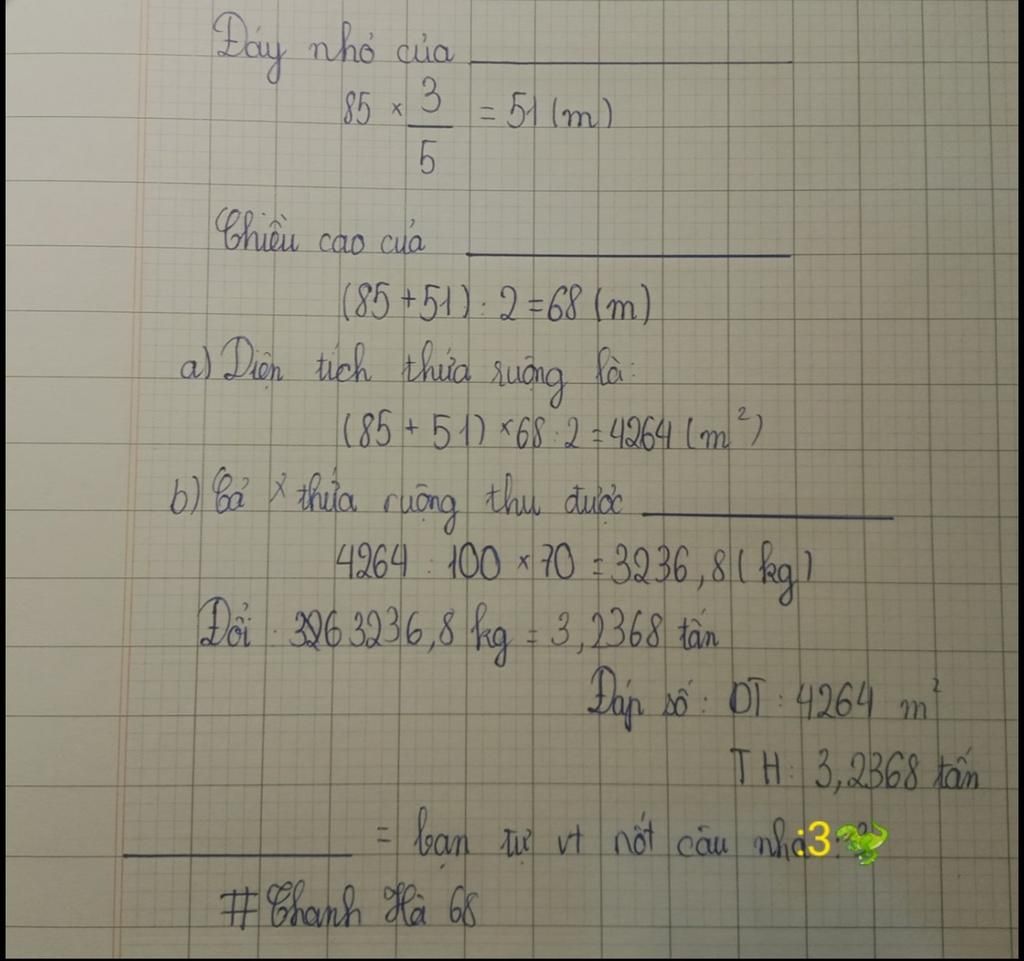 Đáy nhỏ của
85 × 3/5 = 51 (m)
Chiều cao của
(85 + 51) : 2 = 68 (m)
a) Diện tích thửa ruộng là:
(85 + 51) × 68 : 2 = 4264 (m²)
b) Cả thửa ruộng thu được
4264 : 100 × 70 = 3236,8 (kg)
Đổi : 3236,8 kg = 3,2368 tấn
Đáp số : DT : 4264 m²
TH : 3,2368 tấn
= bạn tự vt nốt câu nhá :3
#Thanh Hà 68